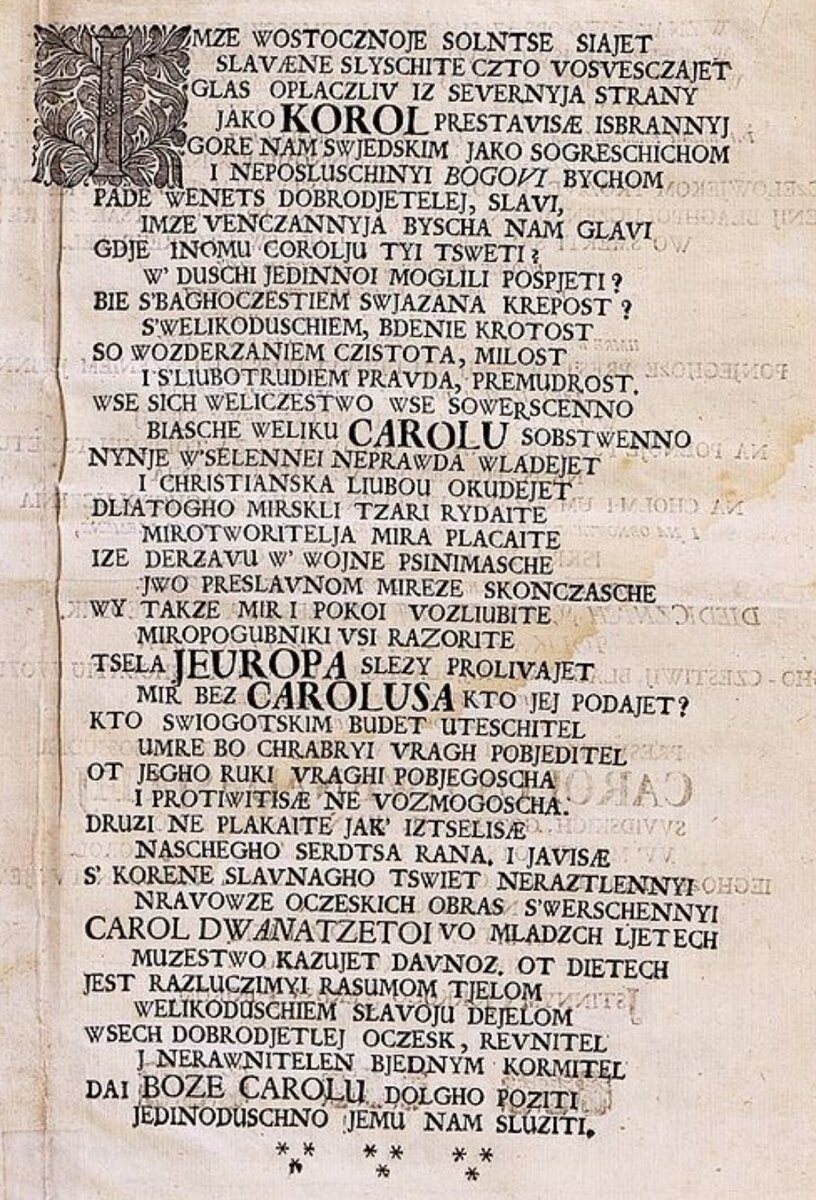 IMZE WOSTOCZNOJE SOLNTSE SIAJET
SLAVÆNE SLYSCHITE CZTO VOSVESCZAJET
GLAS OPLACZLIV IZ SEVERNYJA STRANY
JAKO KOROL PRESTAVISÆ ISBRANNYJ
GORE NAM SWJEDSKIM JAKO SOGRESCHICHOM
I NEPOSLUSCHINYI BOGOVI BYCHOM
PADE WENETS DOBRODJETELEJ, SLAVI,
IMZE VENCZANNYJA BYSCHA NAM GLAVI
GDJE INOMU COROLJU TYI TSWETI?
W' DUSCHI JEDINNOI MOGLILI POSPJETI?
BIE S'BAGHOCZESTIEM SWJAZANA KREPOST?
S'WELIKODUSCHIEM, BDENIE KROTOST
SO WOZDERZANIEM CZISTOTA, MILOST
I S'LIUBOTRUDIEM PRAVDA, PREMUDROST.
WSE SICH WELICZESTWO WSE SOWERSCENNO
BIASCHE WELIKU CAROLU SOBSTWENNO
NYNJE W'SELENNEI NEPRAWDA WLADEJET
I CHRISTIANSKA LIUBOU OKUDEJET
DLIATOGHO MIRSKLI TZARI RYDAITE
MIROTWORITELJA MIRA PLACAITE
IZE DERZAVU W' WOJNE PSINIMASCHE
JWO PRESLAVNOM MIREZE SKONCZASCHE
WY TAKZE MIR I POKOI VOZLIUBITE
MIROPOGUBNIKI VSI RAZORITE
TSELA JEUROPA SLEZY PROLIVAJET
MIR BEZ CAROLUSA KTO JEJ PODAJET?
KTO SWIOGOTSKIM BUDET UTESCHITEL
UMRE BO CHRABRYI VRAGH POBJEDITEL
OT JEGHO RUKI VRAGHI POBJEGOSCHA
I PROTIWITISÆ NE VOZMOGOSCHA.
DRUZI NE PLAKAITE JAK' IZTSELISÆ
NASCHEGHO SERDTSA RANA. I JAVISÆ
S' KORENE SLAVNAGHO TSWIET NERAZTLENNYI
NRAVOWZE OCZESKICH OBRAS S'WERSCHENNYI
CAROL DWANATZETOI VO MLADZCH LJETECH
MUZESTWO KAZUJET DAVNOZ. OT DIETECH
JEST RAZLUCZIMYI RASUMOM TJELOM
WELIKODUSCHIEM SLAVOJU DEJELOM
WSECH DOBRODJETLEJ OCZESK, REVNITEL
J NERAWNITELEN BJEDNYM KORMITEL
DAI BOZE CAROLU DOLGHO POZITI
JEDINODUSCHNO JEMU NAM SLUZITI.